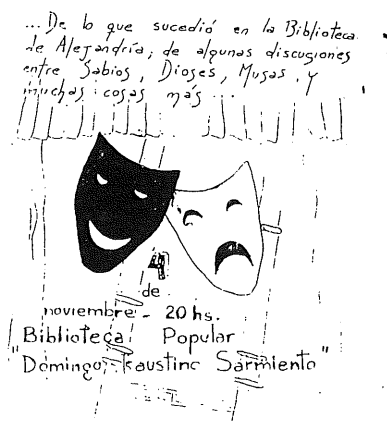 ...De lo que sucedió en la Biblioteca
de Alejandría; de algunas discuciones
entre Sabios, Dioses, Musas, y
muchas cosas más...
4
de
noviembre - 20 hs.
Biblioteca Popular
"Domingo Faustino Sarmiento"